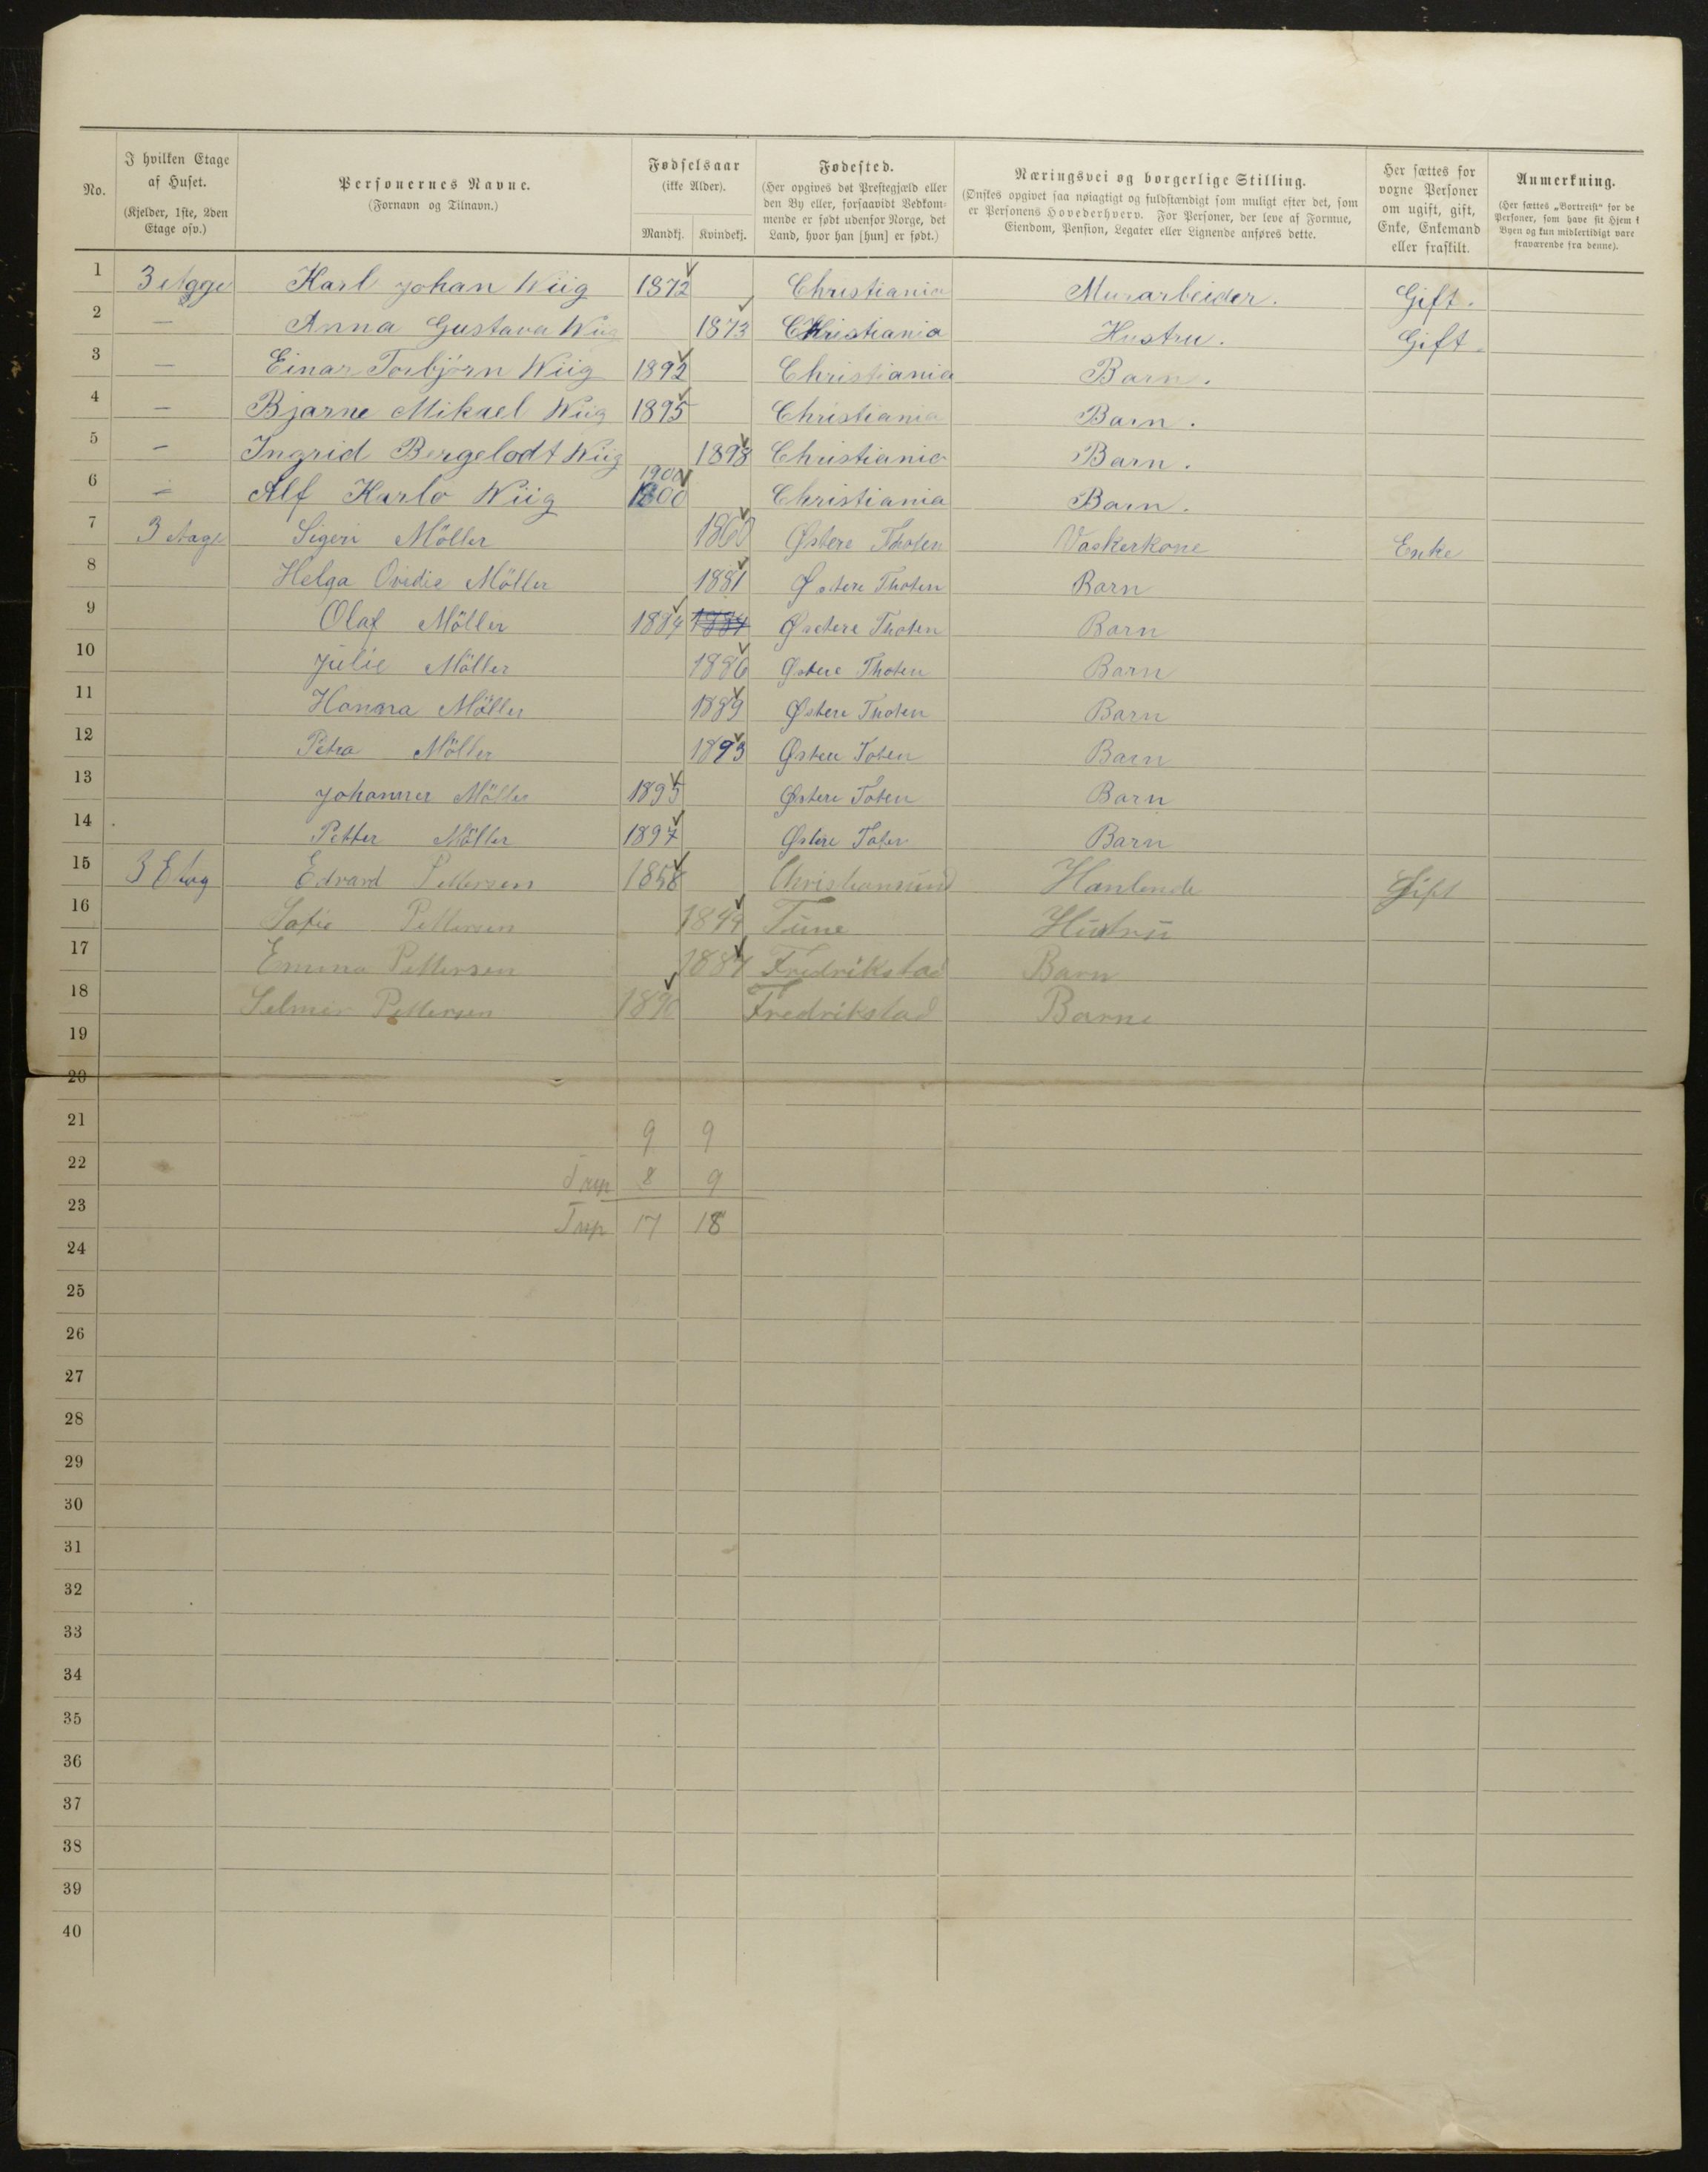 No.
I hvilken Etage af Huset. (Kjelder, 1ste, 2den Etage osv.)
Personernes Navne. (Fornavn og Tilnavn.)
Fødselsaar (ikke Alder). Mandkj. Kvindekj.
Fødested. (Her opgives det Prestegjæld eller den By eller, forsaavidt Vedkommende er født udenfor Norge, det Land, hvor han [hun] er født.)
Næringsvei og borgerlige Stilling. (Ønskes opgivet saa nøiagtigt og fuldstændigt som muligt efter det, som er Personens Hovederhverv. For Personer, der leve af Formue, Eiendom, Pension, Legater eller Lignende anføres dette.
Her sættes for voxne Personer om ugift, gift, Enke, Enkemand eller fraskilt.
Anmerkning. (Her sættes „Bortreist“ for de Personer, som have sit Hjem i Byen og kun midlertidigt vare fraværende fra denne).
1 3 etgge Karl Johan Wiig 1872 Christiania Murarbeider. Gift.
2 — Anna Gustava Wiig 1873 Christiania Hustru. Gift.
3 — Einar Torbjörn Wiig 1892 Christiania Barn.
4 — Bjarne Mikael Wiig 1895 Christiania Barn.
5 — Ingrid Bergelodt Wiig 1898 Christiania Barn.
6 — Alf Karlo Wiig 1900 Christiania Barn.
7 3 etage Sigeri Möller 1860 Østere Thoten Vaskerkone Enke
8 Helga Ovidie Möller 1881 Østere Thoten Barn
9 Olaf Möller 1884 1884 Østere Thoten Barn
10 Julie Möller 1886 Østere Thoten Barn
11 Hanna Möller 1889 Østere Thoten Barn
12 Petra Möller 1893 Østere Toten Barn
13 Johannes Möller 1895 Østere Toten Barn
14 Petter Möller 1897 Østere Toten Barn
15 3 Etag Edvard Pettersen 1858 Christiansund Gift
16 Sofie Pettersen 1849 Tune Hustru
17 Emma Pettersen 1884 Fredrikstad Barn
18 Selmer Pettersen 1890 Fredrikstad Barn
19
20
21 9 9
22 8 9
23 17 18
24
25
26
27
28
29
30
31
32
33
34
35
36
37
38
39
40